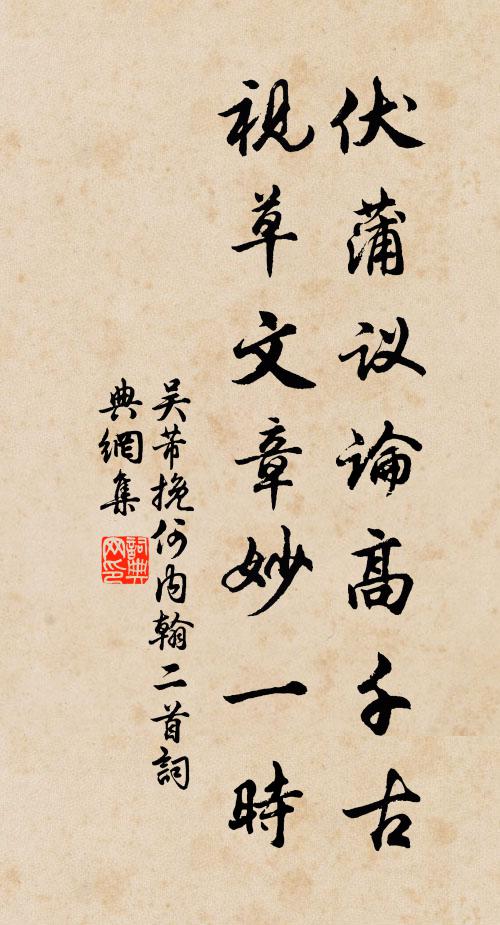 伏蒲议论高千古
视草文章妙一時
吴芾挽何内翰二首詞
典網集
詞典网印